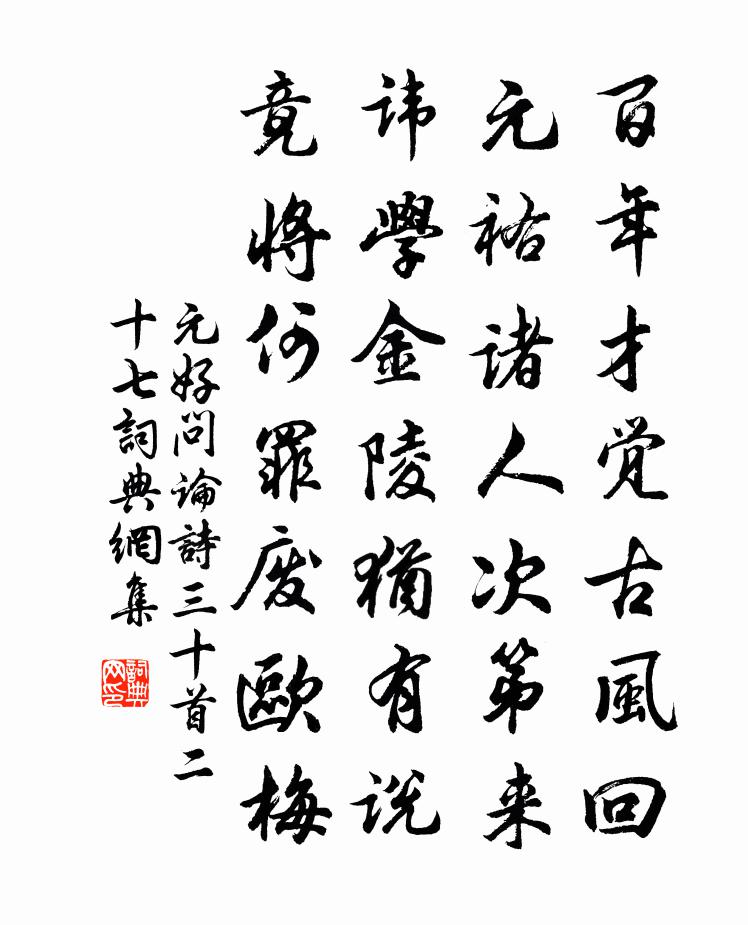 百年才觉古風回
元祐諸人次第来
諱學金陵猶有説
竟將何罪废歐梅
元好問論詩三十首二
十七詞典網集
詞典网印